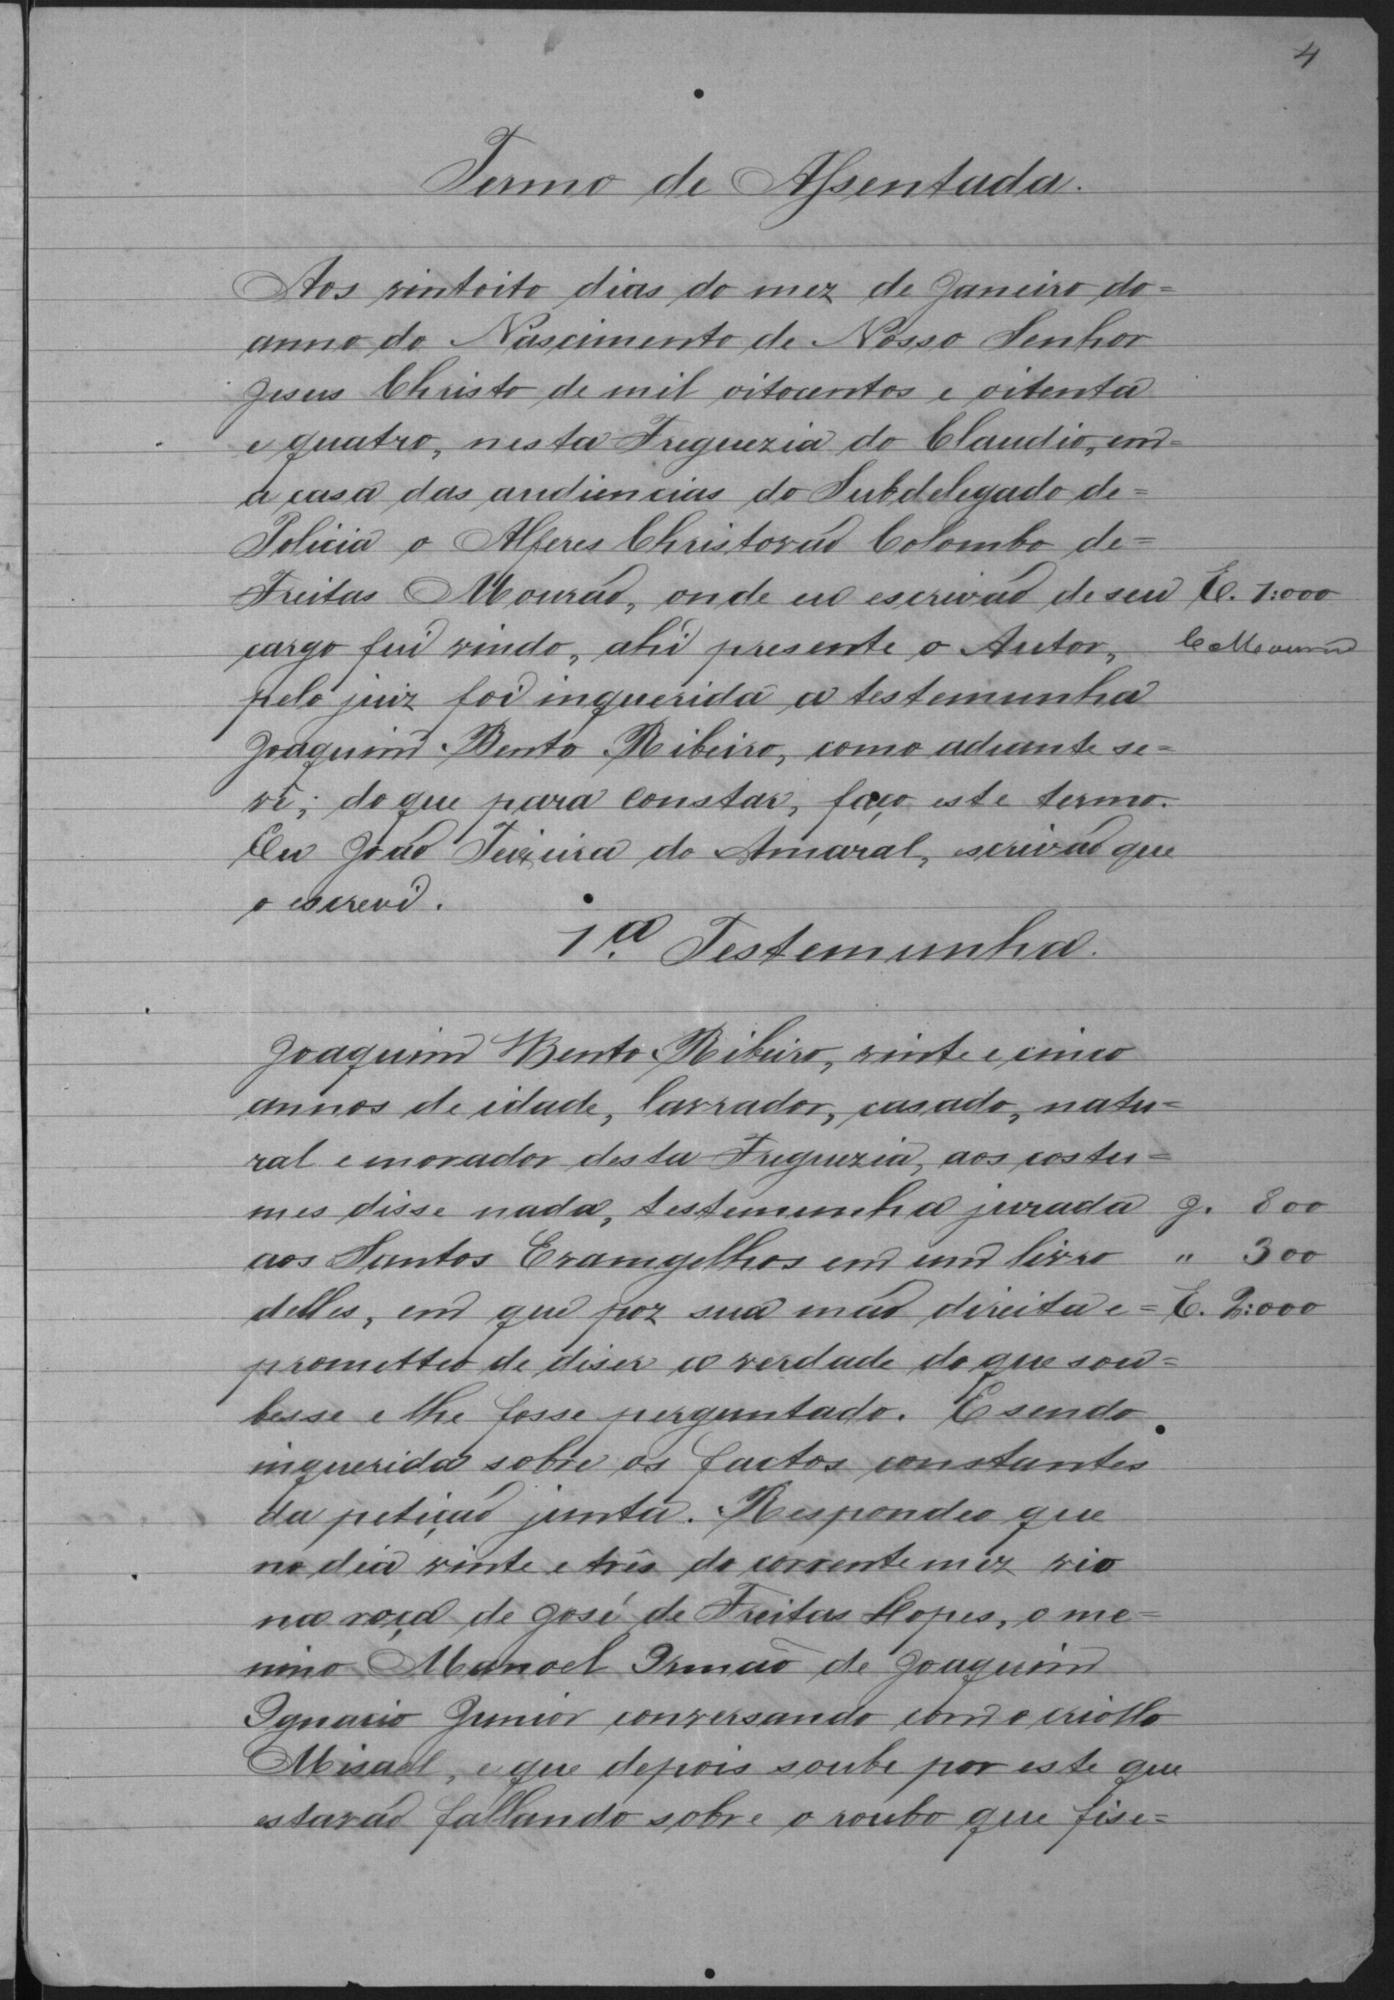 4
Termo de Assentada.
Aos vintoito dias do mez de Janeiro do=
anno do Nascimento de Nosso Senhor
Jesus Christo de mil oitocentos e oitenta
e quatro, nesta Freguezia do Claudio, em=
a casa das audiencias do Subdelegado de=
Policia o Alferes Christovaõ Colombo de=
Freitas Mouraõ, onde eu escrivaõ de seu E. 1:000
cargo fui vindo, ahi presente o Autor, C Mouraõ
pelo juiz foi inquerida a testemunha
Joaquim Bento Ribeiro, como adiante se=
vê; do que para constar, faço este termo.
Eu Joaõ Teixeira do Amaral, escrivaõ que
o escrevi.
1.ª Testemunha.
Joaquim Bento Ribeiro, vinte e cinco
annos de idade, lavrador, casado, natu=
ral e morador desta Freguezia, aos costu=
mes disse nada, testemunha jurada J. 800
aos Santos Evamgelhos em um livro " 300
delles, em que poz sua maõ direita e= E. 2:000
prometteo de diser a verdade do que sou=
besse e lhe fosse perguntado. E sendo
inquerida sobre os factos constantes
da petiçaõ junta. Respondeo que
no dia vinte e três do corrente mez vio
na roça de José de Freitas Lopes, o me=
nino Manoel Irmaõ de Joaquim
Ignacio Junior conversando com o criollo
Misael, e que depois soube por este que
estavaõ fallando sobre o roubo que fise=